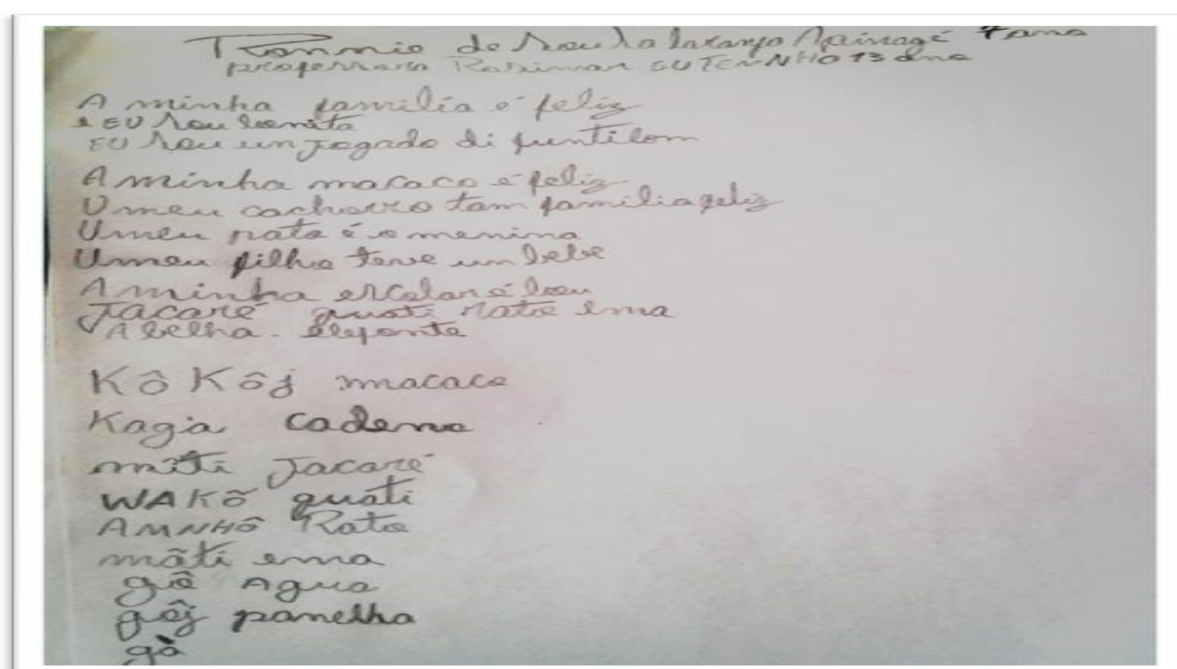 Ronnie de Souza laranja Apinagé 7 ano
professora Rosimar EU TENNHO 13 ano
A minha familia é feliz
EU sou bonita
EU sou un jogado di funtilom
A minha macaco é feliz
U meu cachorro tam familia feliz
U meu rato é o menina
U meu filho teve um bebe
A minha escolar é bou
Jacaré quati rato ema
Abelha - elefante
Kô Kôj macaco
Kagà caderno
miti Jacaré
WAKÕ quati
AMNHÔ Rato
mãti ema
gô Agua
gôj panelha
gà